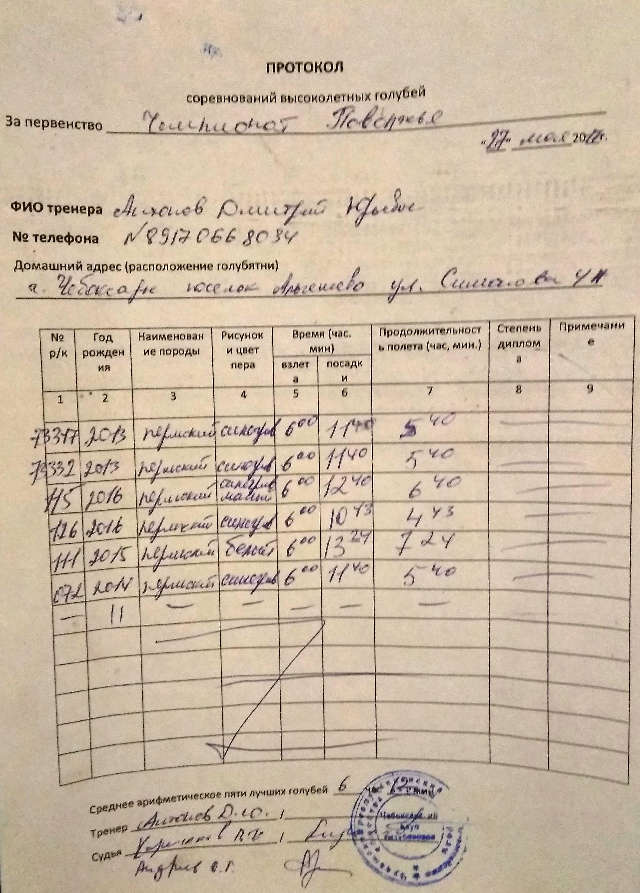 ПРОТОКОЛ
соревнований высоколетных голубей
За первенство Чемпионат Поволжья
"27" мая 201 г.
ФИО тренера Антонов Дмитрий
№ телефона №89170668034
Домашний адрес (расположение голубятни)
г. Чебоксары поселок Альгешево ул.
№ р/к Год рождения Наименование породы Рисунок и цвет пера Время (час. мин) взлета посадки Продолжительность полета (час, мин.) Степень диплома Примечание
1 2 3 4 5 6 7 8 9
73317 2013 пермский 6 00 11 40 5 40
73332 2013 пермский 6 00 11 40 5 40
115 2016 пермский 6 00 12 40 6 40
126 2016 пермский 6 00 10 43 4 43
111 2015 пермский белый 6 00 13 24 7 24
072 2014 пермский 6 00 11 40 5 40
— 11 — — — — —
Среднее арифметическое пяти лучших голубей 6
Тренер Антонов Д.Ю.
Судья